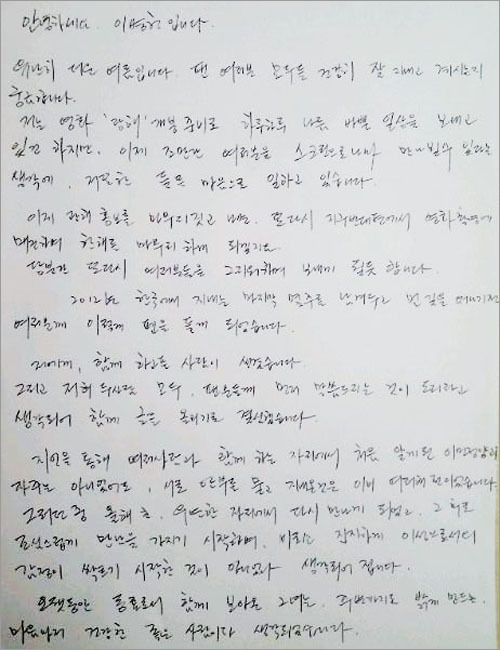 안녕하세요. 이병헌입니다.
유난히 더운 여름입니다. 팬 여러분 모두들 건강히 잘 지내고 계시는지
궁금합니다.
저는 영화 '광해' 개봉 준비로 하루하루 나름 바쁜 일상을 보내고
있긴 하지만, 이제 조만간 여러분을 스크린으로나마 만나뵐 수 있다는
생각에, 저 또한 들뜬 마음으로 일하고 있습니다.
이제 광해 홍보를 마무리 짓고 나면, 또다시 지구 반대편에서 영화 촬영에
매진하며 한해를 마무리하게 되겠지요.
당분간 또다시 여러분들을 그리워하며 보내게 될듯 합니다.
2012년 한국에서 지내는 마지막 몇주를 남겨두고 먼 길을 떠나기전
여러분께 이렇게 펜을 들게 되었습니다.
저에게, 함께 하고픈 사람이 생겼습니다.
그리고 저희 두사람 모두, 팬분들께 먼저 말씀드리는 것이 도리라고
생각되어 함께 글을 올리기로 결심했습니다.
지인을 통해 여러사람과 함께 하는 자리에서 처음 알게된 이민정양과
자주는 아니었어도, 서로 안부를 묻고 지내온것은 이미 여러해 전이었습니다.
그러던 중 올해 초, 우연한 자리에서 다시 만나게 되었고, 그 뒤로
조심스럽게 만남을 가지기 시작하며, 비로소 진지하게 이성으로서의
감정이 싹트기 시작한 것이 아니었나 생각되어 집니다.
오랫동안 동료로서 함께 보아온 그녀는, 주변까지도 밝게 만드는,
마음까지 건강한 좋은 사람이라 생각되었습니다.